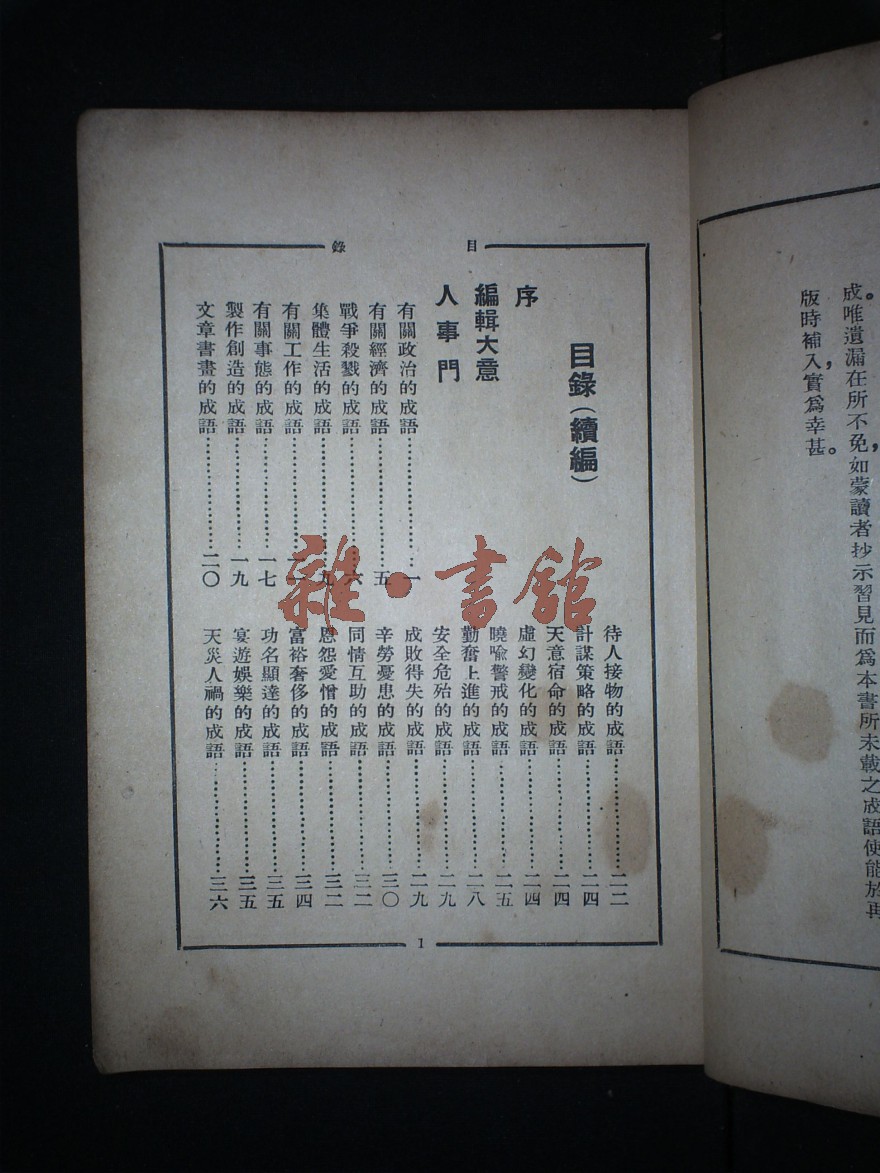 成。唯遺漏在所不免，如蒙讀者抄示習見而爲本書所未載之成語使能於再
版時補入，實爲幸甚。
目錄
目錄（續編）
序
編輯大意
人事門
有關政治的成語……………一
有關經濟的成語……………五
戰爭殺戮的成語……………六
集體生活的成語……………九
有關工作的成語……………
有關事態的成語……………一七
製作創造的成語……………一九
文章書畫的成語……………二〇
待人接物的成語……………二二
計謀策略的成語……………二四
天意宿命的成語……………二四
虛幻變化的成語……………二四
曉喻警戒的成語……………二五
勤奮上進的成語……………二八
安全危殆的成語……………二九
成敗得失的成語……………二九
辛勞憂患的成語……………三〇
同情互助的成語……………三二
恩怨愛憎的成語……………三二
富裕奢侈的成語……………三四
功名顯達的成語……………三五
宴遊娛樂的成語……………三五
天災人禍的成語……………三六
1
雜·書館